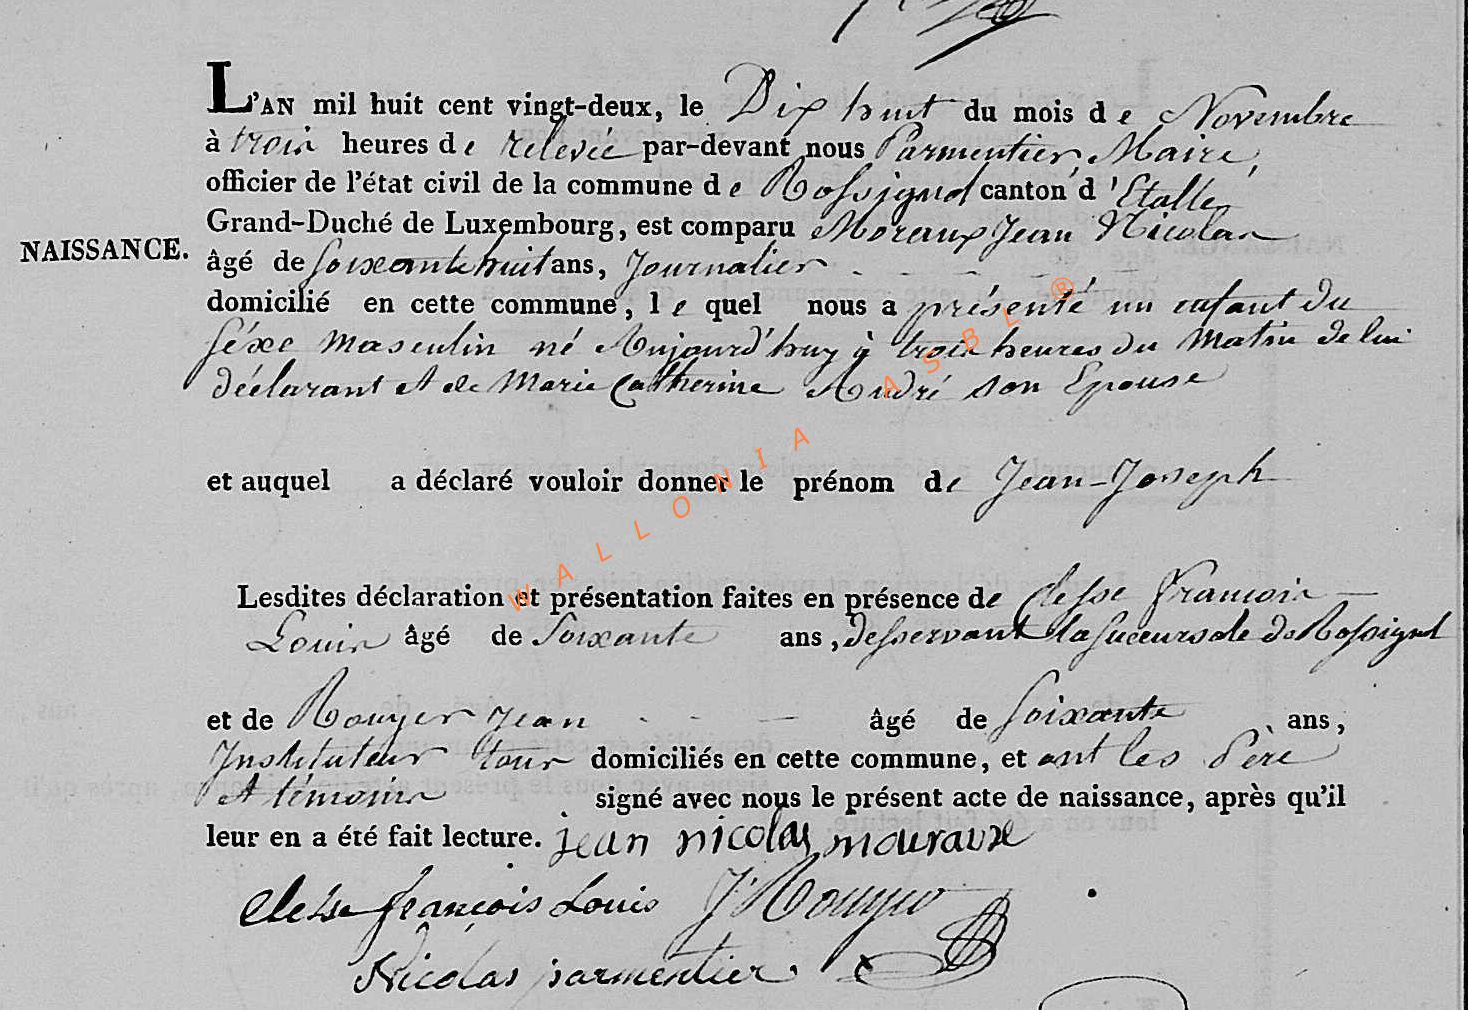 L'AN mil huit cent vingt-deux, le Dix huit du mois de Novembre
à trois heures de relevée par-devant nous Parmentier Maire,
officier de l'état civil de la commune de Rossignol canton d'Etalle
Grand-Duché de Luxembourg, est comparu Moreaux Jean Nicolas
NAISSANCE.
âgé de soixante huit ans, Journalier
domicilié en cette commune, lequel nous a présenté un enfant du
séxe masculin né Aujourd'huy à trois heures du Matin de lui
déclarant et de Marie Catherine André son Epouse
et auquel a déclaré vouloir donner le prénom de Jean-Joseph
Lesdites déclaration et présentation faites en présence de Clesse François
Louis âgé de Soixante ans, desservant la succursale de Rossignol
et de Rouyer Jean âgé de soixante ans,
Instituteur tous domiciliés en cette commune, et ont les Père
et témoins signé avec nous le présent acte de naissance, après qu'il
leur en a été fait lecture. jean nicolas mouraux
Clesse françois Louis J Rouyer
Nicolas parmentier
WALLONIA ASBL ®